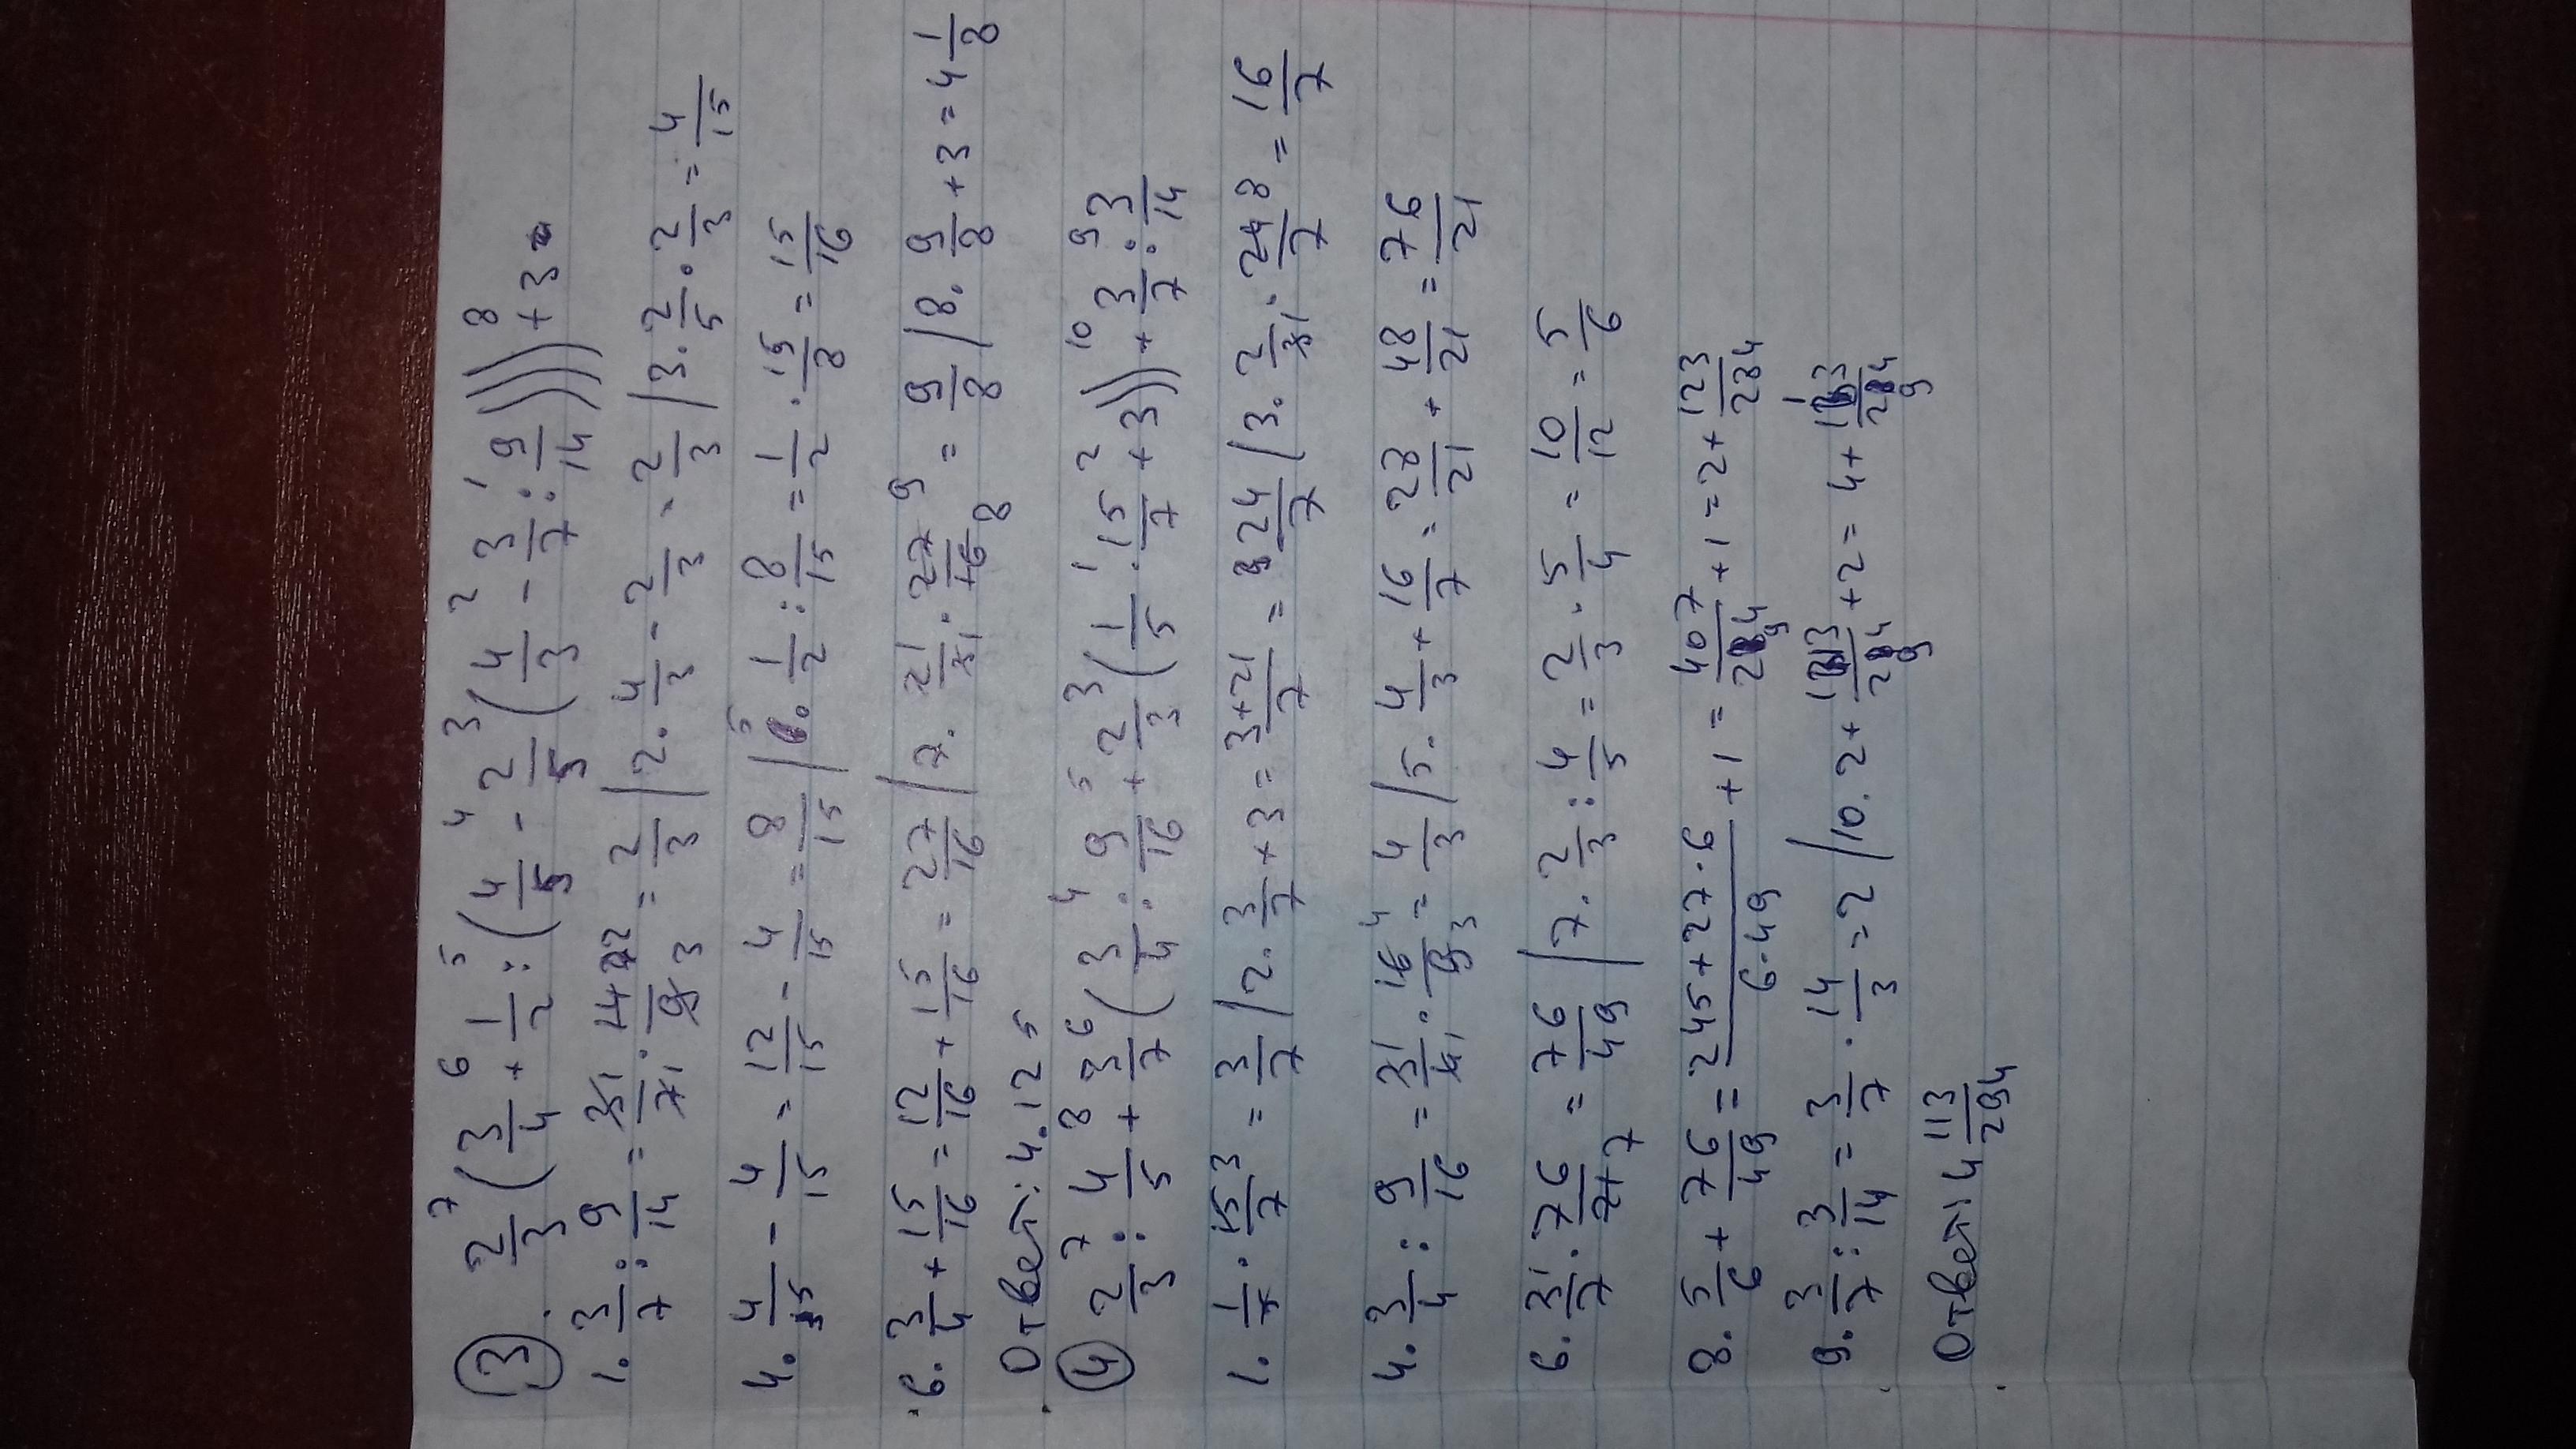 ③ 2/3 ⁷ (3/4 ⁶ + 1/2 ⁵ : (4/5 ⁴ - 2/5 ³ (4/3 ² - 3/7 ¹ : 9/14))) ⁸ + 3
1. 3/7 : 9/14 = 3̶1/7̶1 · 1̶4̶2/9̶3 = 2/3 | 2. 4/3 - 2/3 = 2/3 | 3. 2/5 · 2/3 = 4/15
4. 4/5 - 4/15 = 12/15 - 4/15 = 8/15 | 5. 1/2 : 8/15 = 1/2 · 15/8 = 15/16
6. 3/4 + 15/16 = 12/16 + 15/16 = 27/16 | 7. 2̶1/3̶1 · 2̶7̶9/1̶6̶8 = 9/8 | 8. 9/8 + 3 = 4 1/8
Ответ: 4.125
④ 2/3 ⁷ : 4/5 ⁸ + 3/7 ⁶ (3/4 ⁴ : 9/16 ⁵ + 2/3 ³ (1/5 ¹ · 15/7 ² + 3)) ¹⁰ + 3/7 ⁹ : 3/14
1. 1/5̶ · 1̶5̶3/7 = 3/7 | 2. 3/7 + 3 = 3+21/7 = 24/7 | 3. 2/3̶1 · 2̶4̶8/7 = 16/7
4. 3/4 : 9/16 = 3̶1/4̶1 · 1̶6̶4/9̶3 = 4/3 | 5. 4/3 + 16/7 = 28/21 + 48/21 = 76/21
6. 3̶1/7 · 76/2̶1̶7 = 76/49 | 7. 2/3 : 4/5 = 2/3 · 5/4 = 10/12 = 5/6
8. 5/6 + 76/49 = 245+27·6/6·49 + 1 = 407/294 + 1 = 2 + 123/294
9. 3/7 : 3/14 = 3/7 · 14/3 = 2 | 10. 2 + 113/294 + 2 = 4 + 113/294
Ответ: 4 113/294